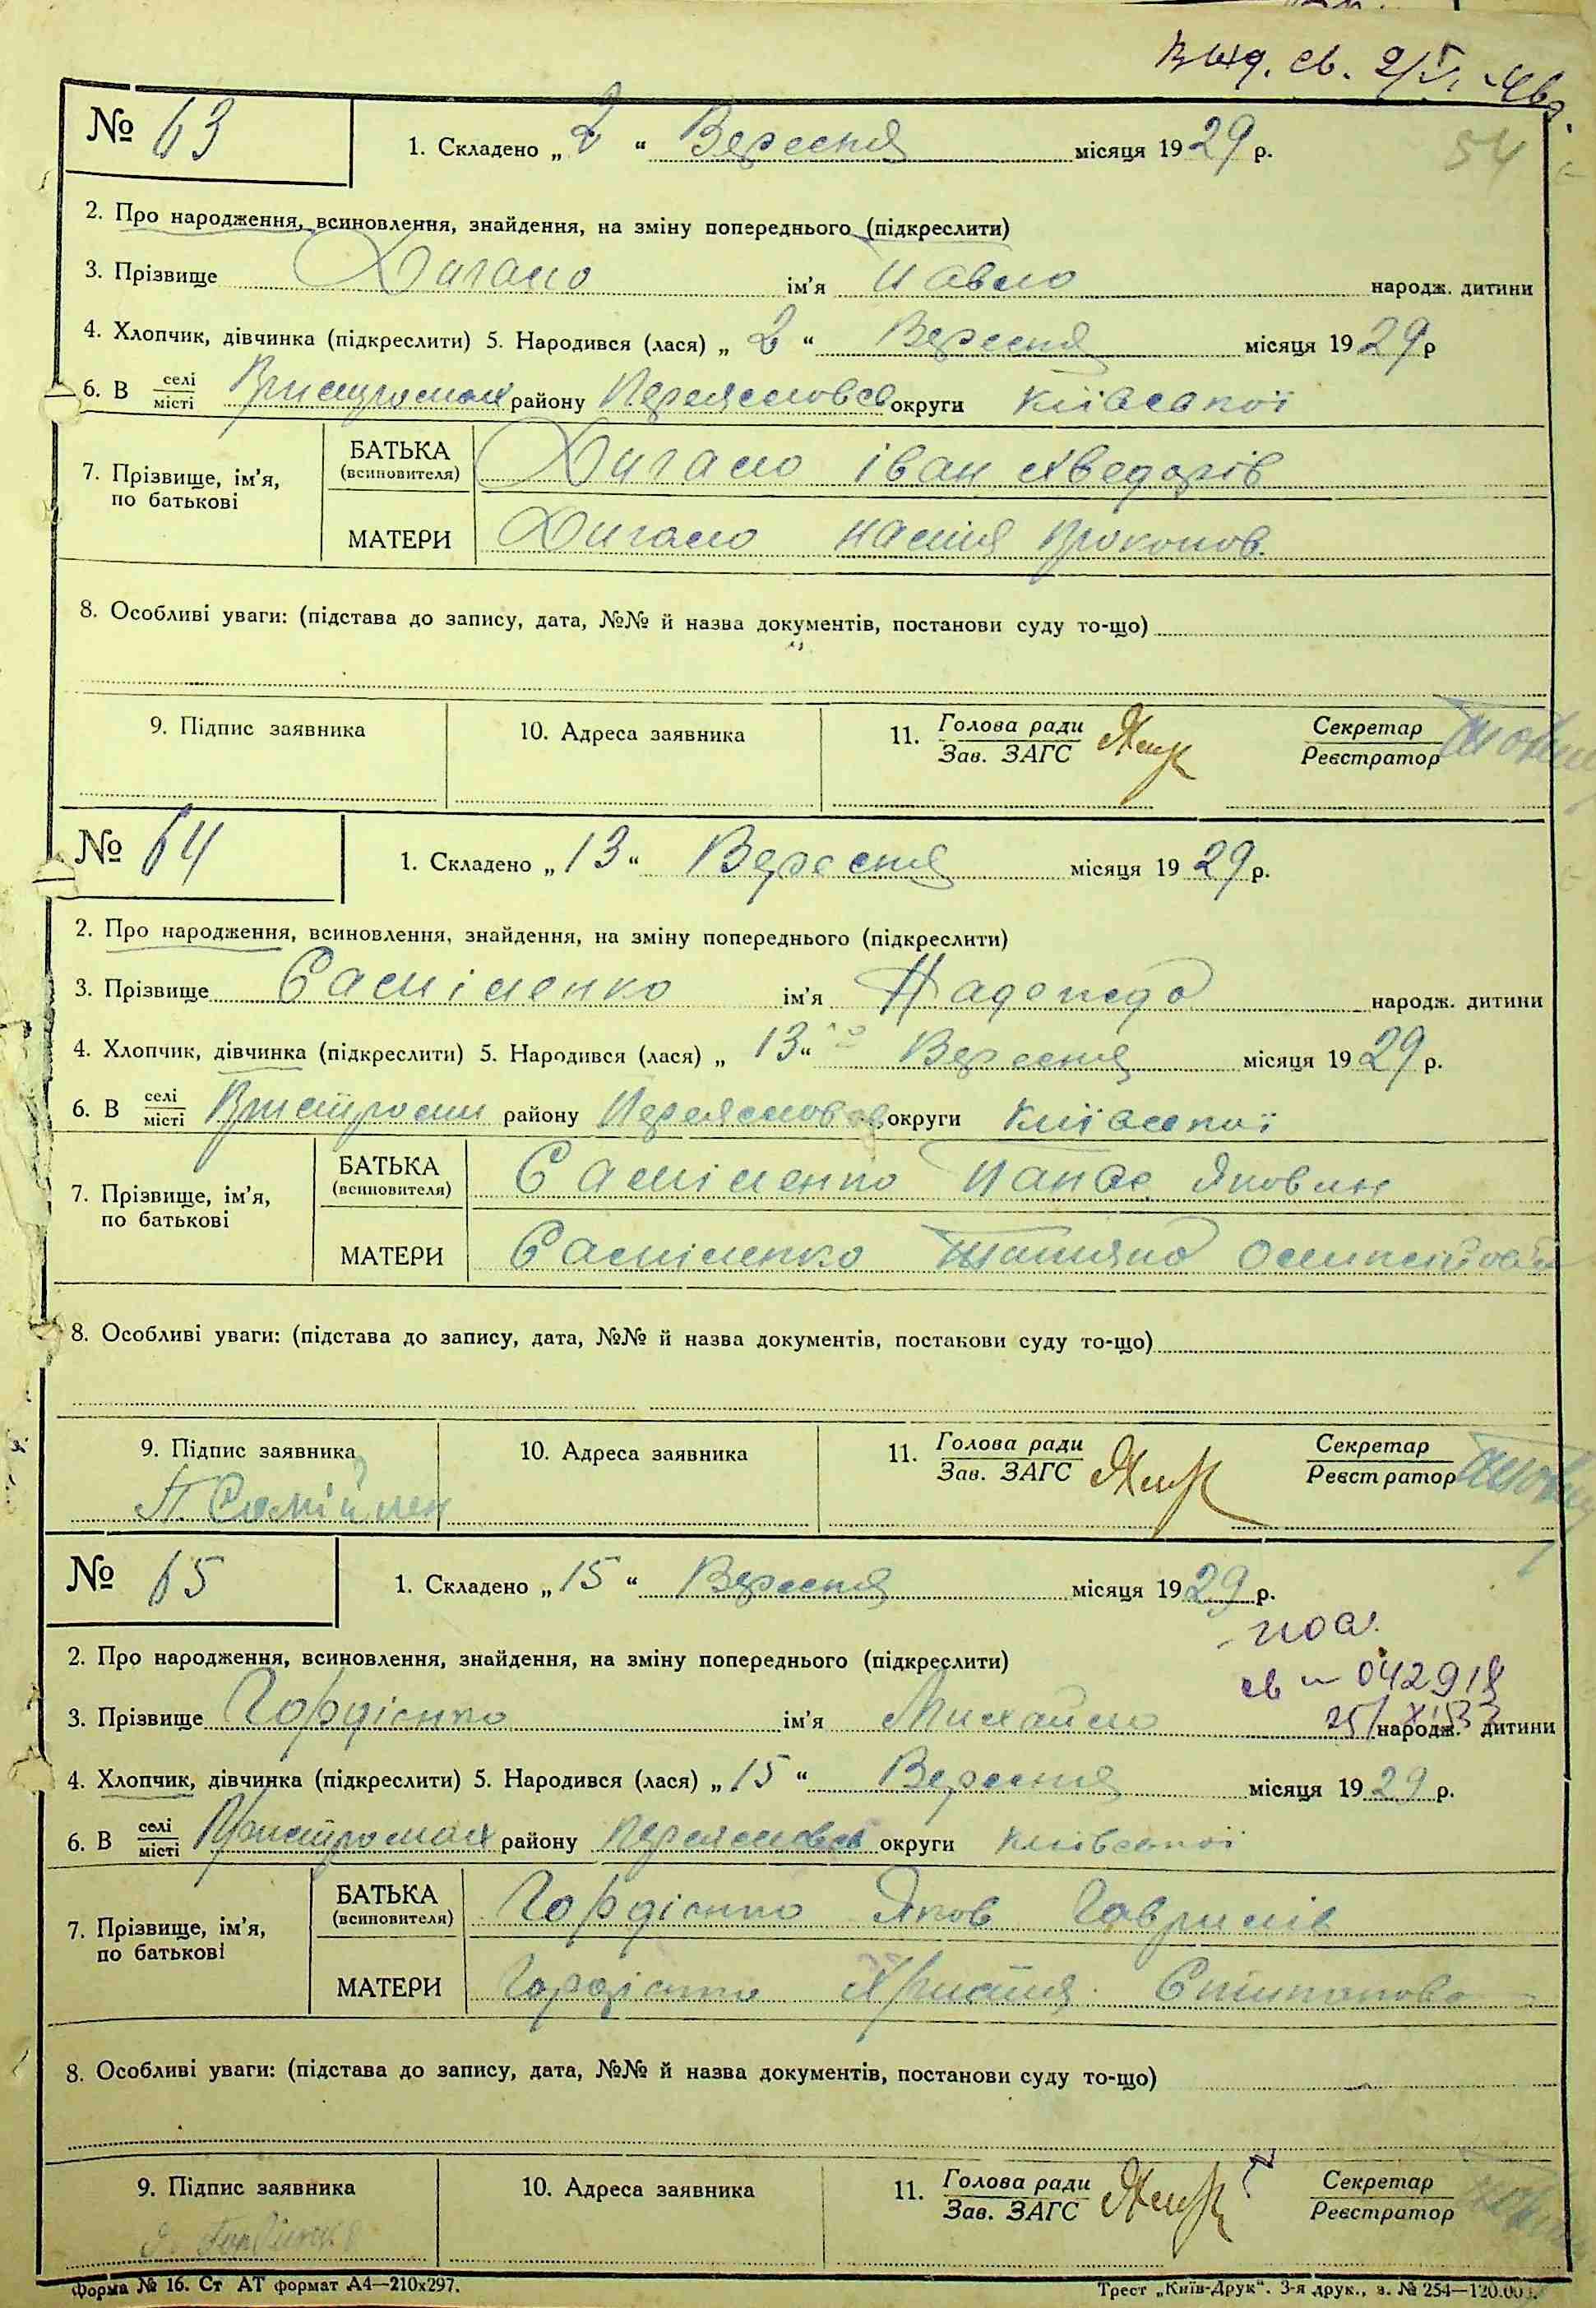 Выд. св. 2/VI-46г.
54
№ 63
1. Складено „ 2 “ Вересня місяця 1929 р.
2. Про народження, всиновлення, знайдення, на зміну попереднього (підкреслити)
3. Прізвище Дигало ім’я Павло народж. дитини
4. Хлопчик, дівчинка (підкреслити) 5. Народився (лася) „ 2 “ Вересня місяця 1929 р
6. В селі/місті Пристромах району Переяславсь округи Київської
7. Прізвище, ім’я, по батькові
БАТЬКА (всиновителя) Дигало Іван Хведорів
МАТЕРИ Дигало Настя Прокопов.
8. Особливі уваги: (підстава до запису, дата, №№ й назва документів, постанови суду то-що)
9. Підпис заявника 10. Адреса заявника 11. Голова ради/Зав. ЗАГС Секретар/Реєстратор
№ 64
1. Складено „ 13 “ Вересня місяця 1929 р.
2. Про народження, всиновлення, знайдення, на зміну попереднього (підкреслити)
3. Прізвище Самійленко ім’я Надежда народж. дитини
4. Хлопчик, дівчинка (підкреслити) 5. Народився (лася) „ 13 “ Вересня місяця 1929 р.
6. В селі/місті Пристроми району Переяславсь округи Київської
7. Прізвище, ім’я, по батькові
БАТЬКА (всиновителя) Саміленко Панас Якович
МАТЕРИ Саміленко Татяна
8. Особливі уваги: (підстава до запису, дата, №№ й назва документів, постанови суду то-що)
9. Підпис заявника 10. Адреса заявника 11. Голова ради/Зав. ЗАГС Секретар/Реєстратор
П. Самійлен
№ 65
1. Складено „ 15 “ Вересня місяця 1929 р.
2. Про народження, всиновлення, знайдення, на зміну попереднього (підкреслити)
св 042918
3. Прізвище Гордієнко ім’я Михайло народж. дитини
4. Хлопчик, дівчинка (підкреслити) 5. Народився (лася) „ 15 “ Вересня місяця 1929 р.
6. В селі/місті Пристромах району Переяславсь округи Київської
7. Прізвище, ім’я, по батькові
БАТЬКА (всиновителя) Гордієнко Яков Гаврилів
МАТЕРИ Гордієнко Христя Степанова
8. Особливі уваги: (підстава до запису, дата, №№ й назва документів, постанови суду то-що)
9. Підпис заявника 10. Адреса заявника 11. Голова ради/Зав. ЗАГС Секретар/Реєстратор
Форма № 16. Ст АТ формат А4—210х297.
Трест „Київ-Друк“. 3-я друк., з. № 254—120.00